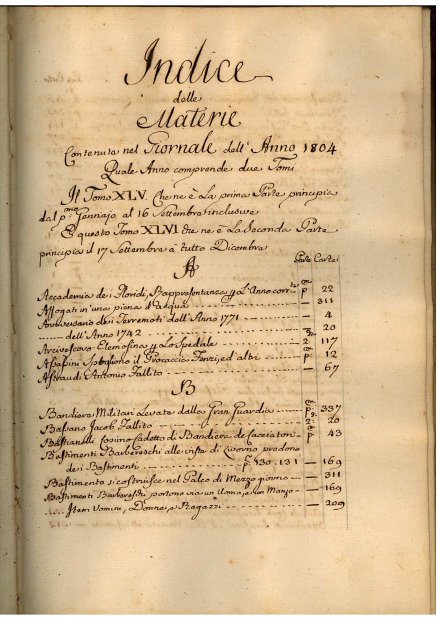 Indice
delle
Materie
Contenute nel Giornale dell' Anno 1804
Quale Anno comprende due Tomi
Il Tomo XLV. Che ne è La prima Parte principia
dal p.mo Gennajo al 16 Settembre inclusive
E questo Tomo XLVI che ne è La Seconda Parte
principia il 17 Settembre à tutto Dicembre
A
Parte Carte
Accademia dei Floridi, Rappresentanze 22
Affogati in una piena d'Acqua 311
Anniversario dei Terremoti dell'Anno 1771 4
dell'Anno 1742 20
Arcivescovo Elemosina Lo Spedale 2 117
Assassini il Procaccio ed altri 12
Antonio Fallito 67
B
Bandiere Militari Levate dalla Gran Guardia 337
Bassano Jacob Fallito 20
Cosimo Cadetto di Bandiera de Cacciatori 43
Bastimenti Barbereschi alle viste di Livorno predono
dei Bastimenti 130. 131 — 169
Bastimento si costruisce nel di Mezzo giorno — 311
Bastimenti Barbereschi portono via un Uomo, e un Manzo — 169
Item Uomini, Donne, e Ragazzi — 209